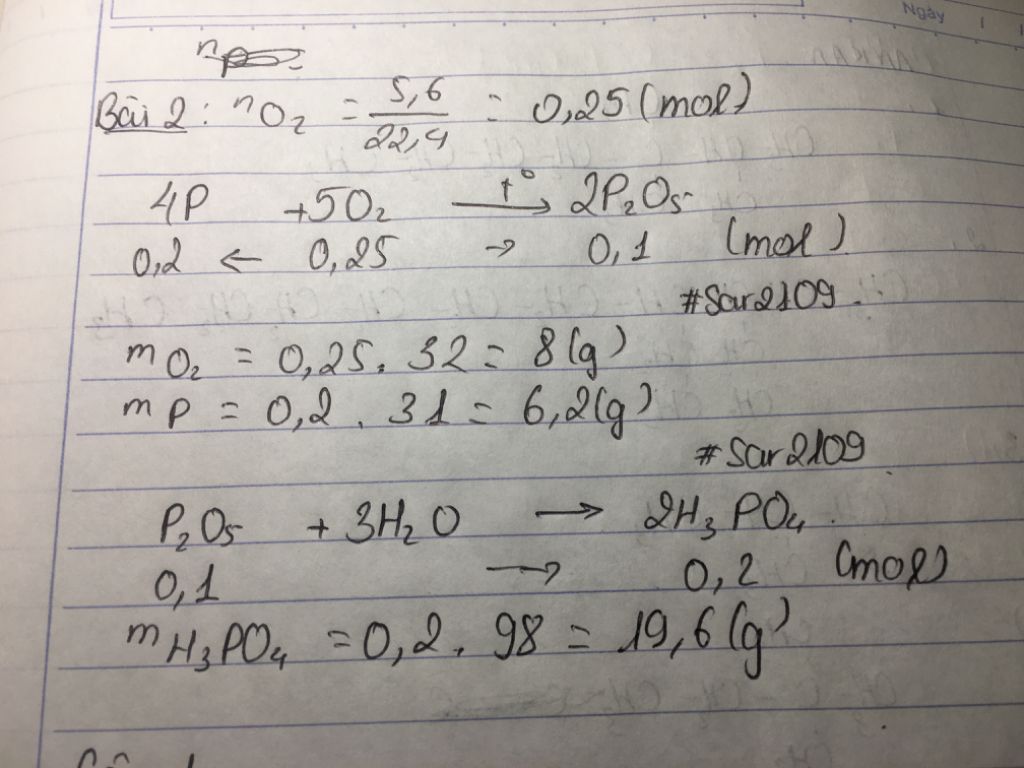 Ngày
Bài 2 : nO2 = 5,6/22,4 = 0,25 (mol)
4P + 5O2 —t°→ 2P2O5
0,2 ← 0,25 → 0,1 (mol)
#Sar2109.
mO2 = 0,25 . 32 = 8 (g)
mP = 0,2 . 31 = 6,2 (g)
#Sar2109
P2O5 + 3H2O → 2H3PO4.
0,1 → 0,2 (mol)
mH3PO4 = 0,2 . 98 = 19,6 (g)